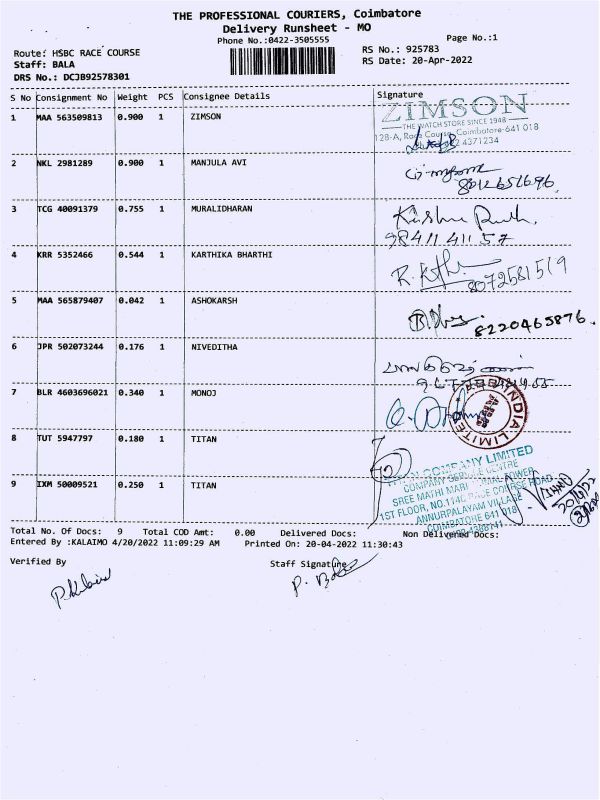 THE PROFESSIONAL COURIERS, Coimbatore
Delivery Runsheet - MO
Phone No.:0422-3505555
Page No.:1
Route: HSBC RACE COURSE
RS No.: 925783
Staff: BALA
RS Date: 20-Apr-2022
DRS No.: DCJB92578301
S No Consignment No Weight PCS Consignee Details Signature
1 MAA 563509813 0.900 1 ZIMSON
ZIMSON
THE WATCH STORE SINCE 1948
128-A, Race Course, Coimbatore-641 018
4371234
2 NKL 2981289 0.900 1 MANJULA AVI
8012651696
3 TCG 40091379 0.755 1 MURALIDHARAN
98411 411 57
4 KRR 5352466 0.544 1 KARTHIKA BHARTHI
8072581519
5 MAA 565879407 0.042 1 ASHOKARSH
8220465876
6 JPR 502073244 0.176 1 NIVEDITHA
7 BLR 4603696021 0.340 1 MONOJ
INDIA LIMITED
8 TUT 5947797 0.180 1 TITAN
9 IXM 50009521 0.250 1 TITAN
COMPANY LIMITED
COMPANY SERVICE CENTRE
SREE MATHI MAHAL TOWER
1ST FLOOR, NO.114C RACE COURSE ROAD
ANNURPALAYAM VILLAGE
COIMBATORE 641 018
Total No. Of Docs: 9 Total COD Amt: 0.00 Delivered Docs: Non Delivered Docs:
Entered By :KALAIMO 4/20/2022 11:09:29 AM Printed On: 20-04-2022 11:30:43
Verified By Staff Signature
P. Bala